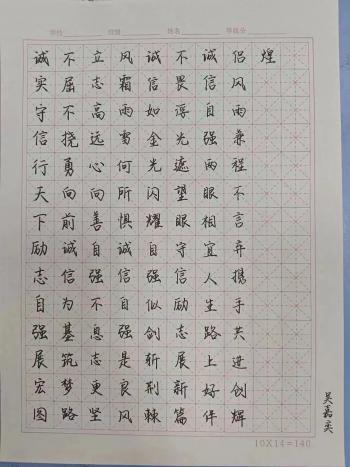 学校 班级 姓名 等级分
诚实守信行天下励志自强展宏图
不屈不挠勇向前诚信为基筑梦路
立志高远心向善自强不息志更坚
风霜雨雪何所惧诚信自强是良风
诚信如金光闪耀自强似剑斩荆棘
不畏浮光遮望眼守信励志展新篇
诚信自强两眼相宜人生路上好伴
侣风雨兼程不言弃携手共进创辉
煌
吴嘉奕
10X14=140